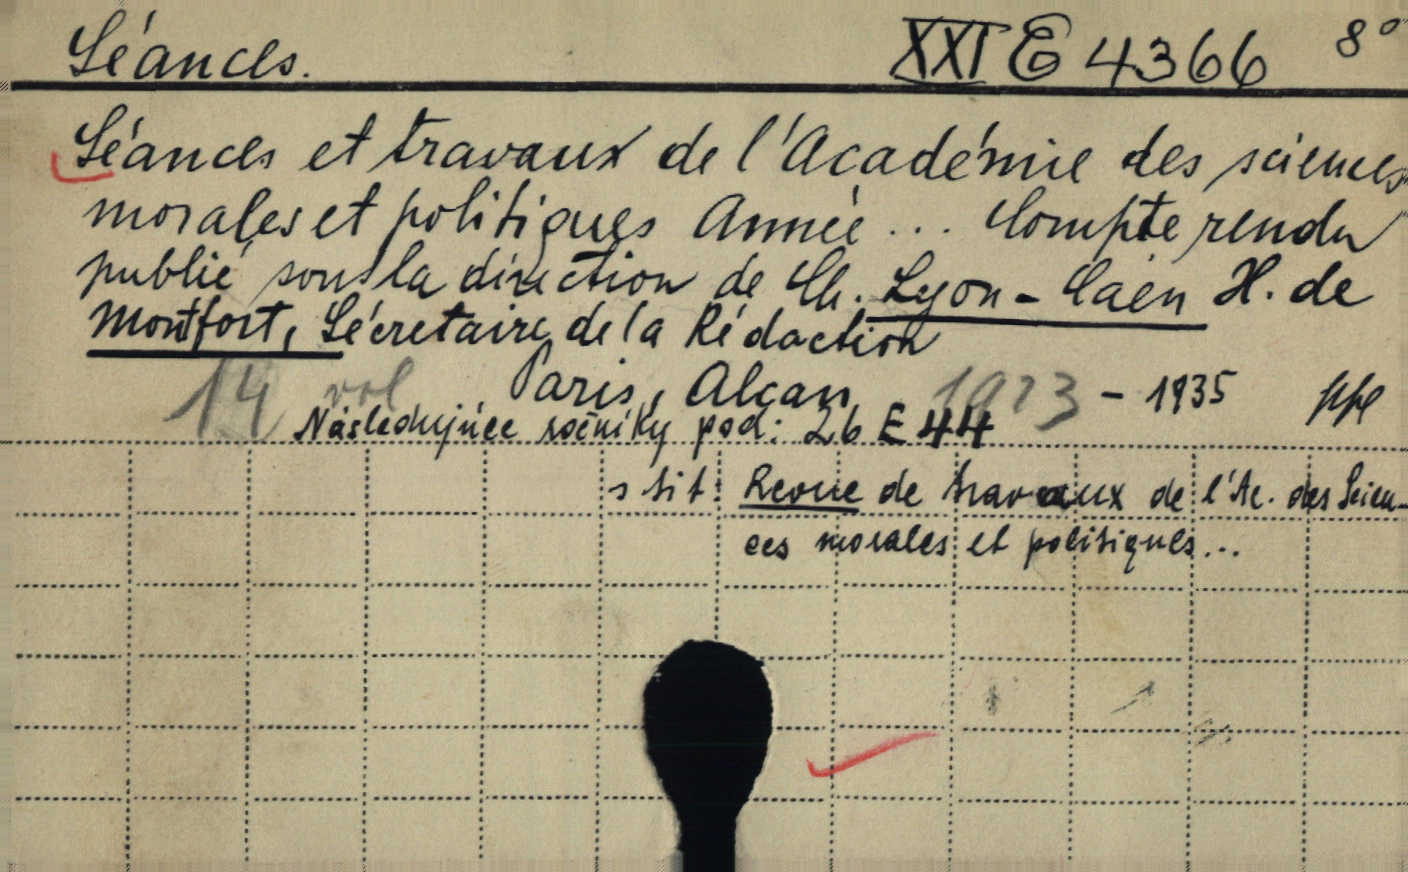 Séances.
XXI E 4366 8°
Séances et travaux de l'Académie des sciences
morales et politiques Année ... Compte rendu
publié sous la direction de Ch. Lyon-Caen H. de
Montfort, Sécretaire de la Rédaction
14 vol Paris, Alcan 1923 - 1935
Následujíce ročníky pod: 26 E 44
s tit: Revue de travaux de l'Ac. des Scien-
ces morales et politiques...